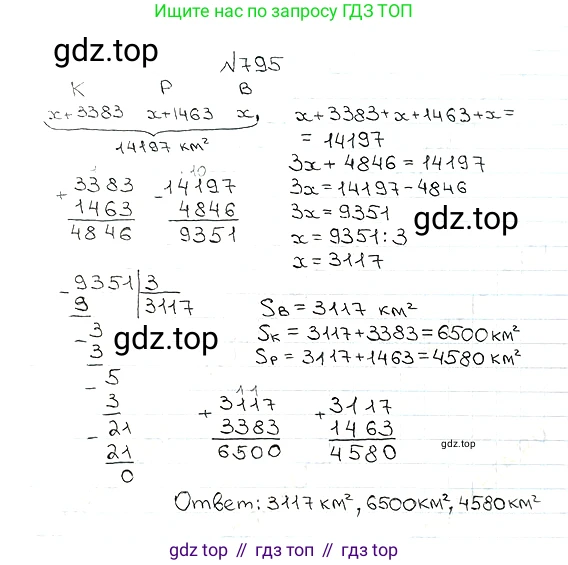 Ищите по запросу ГДЗ ТОП
gdz.top
№795
К Р В
x+3383 x+1463 x,
14197 км²
x+3383+x+1463+x=
= 14197
3x + 4846 = 14197
3x = 14197-4846
3x = 9351
x = 9351:3
x = 3117
gdz.top
1
+ 3383
1463
4846
· 10
- 14197
4846
9351
- 9351 3
9 3117
- 3
3
- 5
3
- 21
21
0
gdz.top
Sв = 3117 км²
Sк = 3117+3383=6500км²
Sр = 3117+1463=4580км²
11
+ 3117
3383
6500
+ 3117
1463
4580
gdz.top
Ответ: 3117 км², 6500км², 4580км²
gdz.top // гдз топ // gdz.top